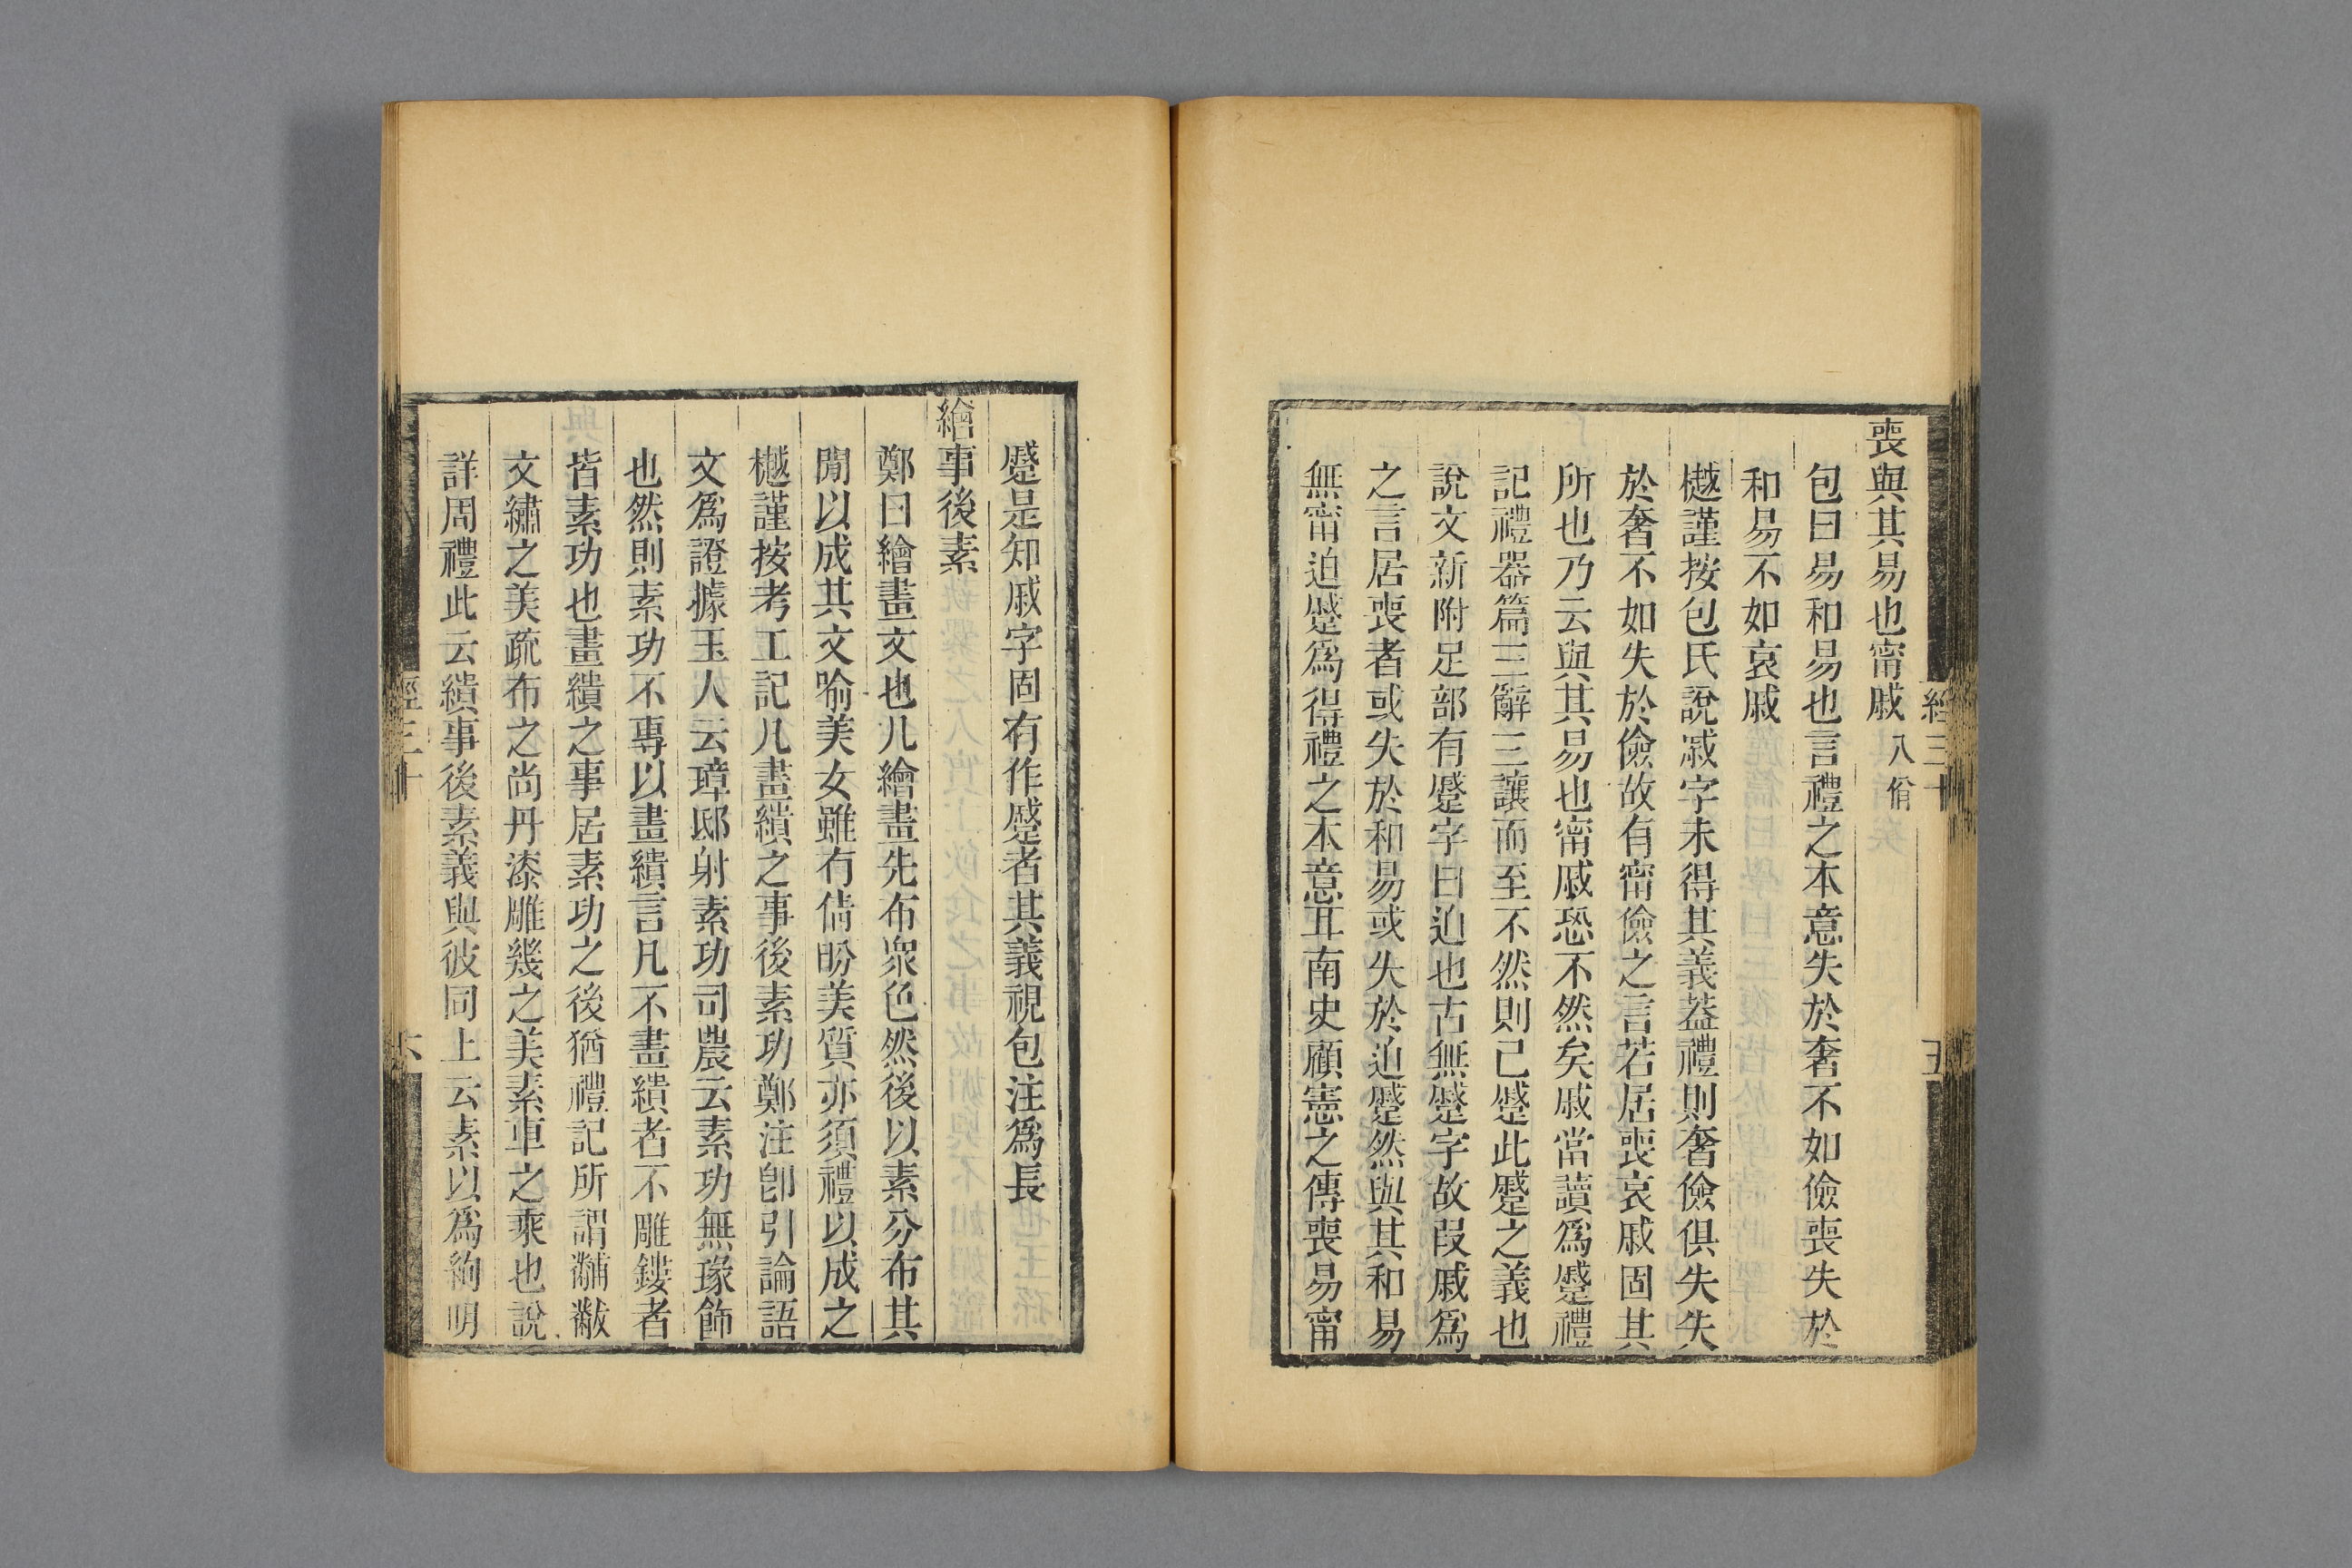 喪與其易也甯戚八佾
包曰易和易也言禮之本意失於奢不如儉喪失於
和易不如哀戚
樾謹按包氏說戚字未得其義葢禮則奢儉俱失失
於奢不如失於儉故有甯儉之言若居喪哀戚固其
所也乃云與其易也甯戚恐不然矣戚當讀爲蹙禮
記禮器篇三辭三讓而至不然則已蹙此蹙之義也
說文新附足部有蹙字曰迫也古無蹙字故叚戚爲
之言居喪者或失於和易或失於迫蹙然與其和易
無甯迫蹙爲得禮之本意耳南史顧憲之傳喪易甯
經三十
五
蹙是知戚字固有作蹙者其義視包注爲長
繪事後素
鄭曰繪畫文也凡繪畫先布衆色然後以素分布其
閒以成其文喻美女雖有倩盼美質亦須禮以成之
樾謹按考工記凡畫繢之事後素功鄭注卽引論語
文爲證據玉人云璋邸射素功司農云素功無瑑飾
也然則素功不專以畫繢言凡不畫繢者不雕鏤者
皆素功也畫繢之事居素功之後猶禮記所謂黼黻
文繡之美疏布之尚丹漆雕幾之美素車之乘也說
詳周禮此云繢事後素義與彼同上云素以爲絢明
經三十
六